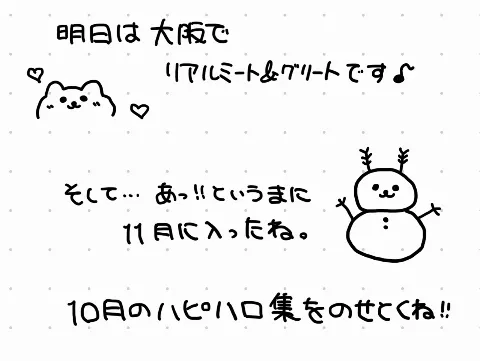 明日は大阪で
リアルミート&グリートです♪
そして… あっ!!というまに
11月に入ったね。
10月のハピハロ集をのせとくね!!